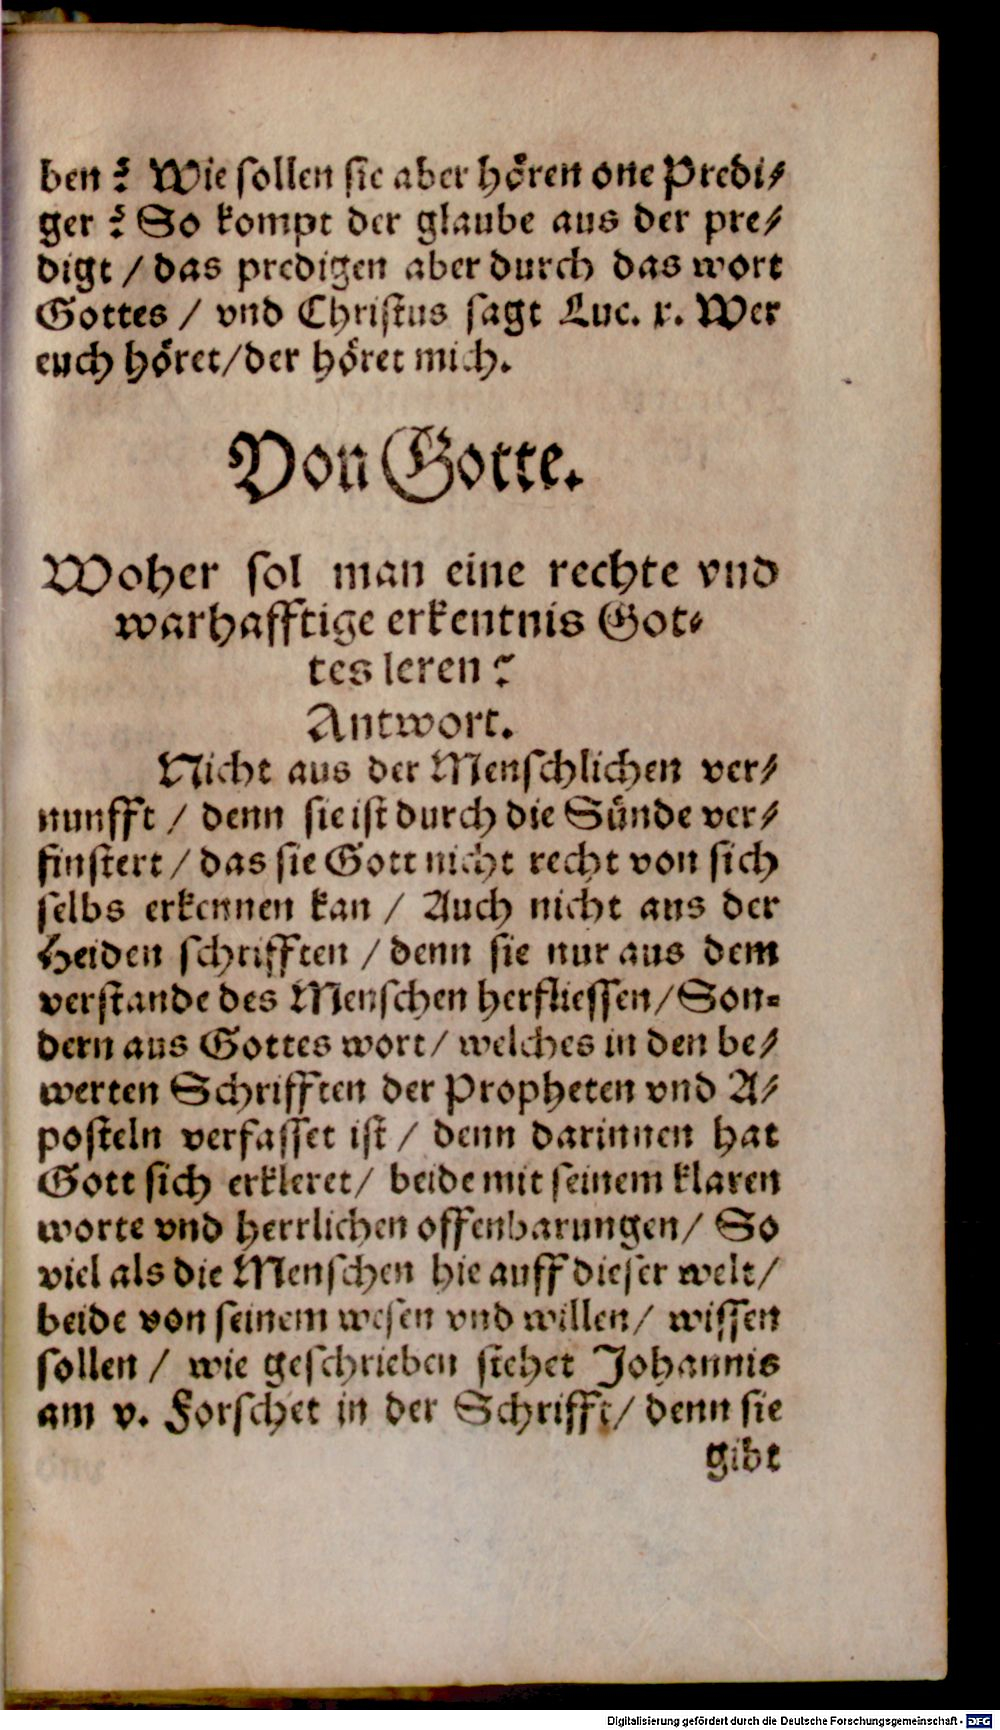 ben? Wie sollen sie aber hören one Predi/
ger? So kompt der glaube aus der pre/
digt / das predigen aber durch das wort
Gottes / vnd Christus sagt Luc. x. Wer
euch höret/der höret mich.
Von Gotte.
Woher sol man eine rechte vnd
warhafftige erkentnis Got/
tes leren?
Antwort.
Nicht aus der Menschlichen ver/
nunfft / denn sie ist durch die Sünde ver/
finstert / das sie Gott nicht recht von sich
selbs erkennen kan / Auch nicht aus der
Heiden schrifften / denn sie nur aus dem
verstande des Menschen herfliessen/Son-
dern aus Gottes wort/ welches in den be/
werten Schrifften der Propheten vnd A/
posteln verfasset ist / denn darinnen hat
Gott sich erkleret/ beide mit seinem klaren
worte vnd herrlichen offenbarungen/ So
viel als die Menschen hie auff dieser welt/
beide von seinem wesen vnd willen/ wissen
sollen / wie geschrieben stehet Johannis
am v. Forschet in der Schrifft/ denn sie
gibt
Digitalisierung gefördert durch die Deutsche Forschungsgemeinschaft - DFG